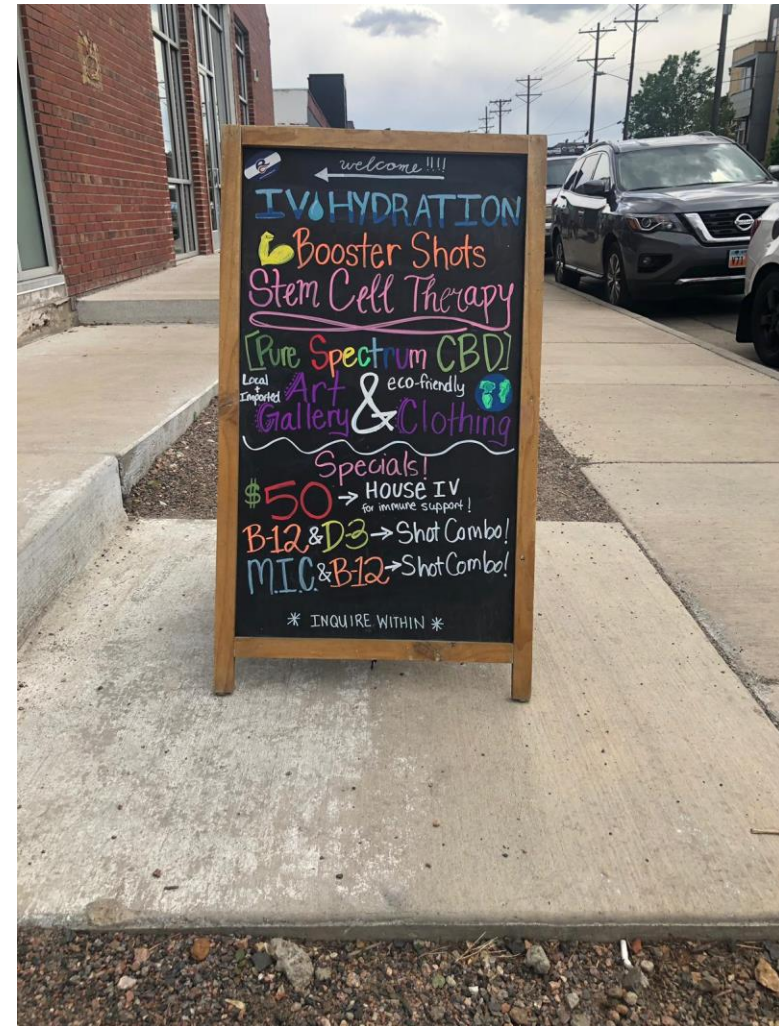 welcome!!!!
IV HYDRATION
Booster Shots
Stem Cell Therapy
[Pure Spectrum CBD]
Local + Imported Art Gallery & eco-friendly Clothing
Specials!
$50 → HOUSE IV
for immune support!
B-12 & D-3 → Shot Combo!
M.I.C. & B-12 → Shot Combo!
* INQUIRE WITHIN *